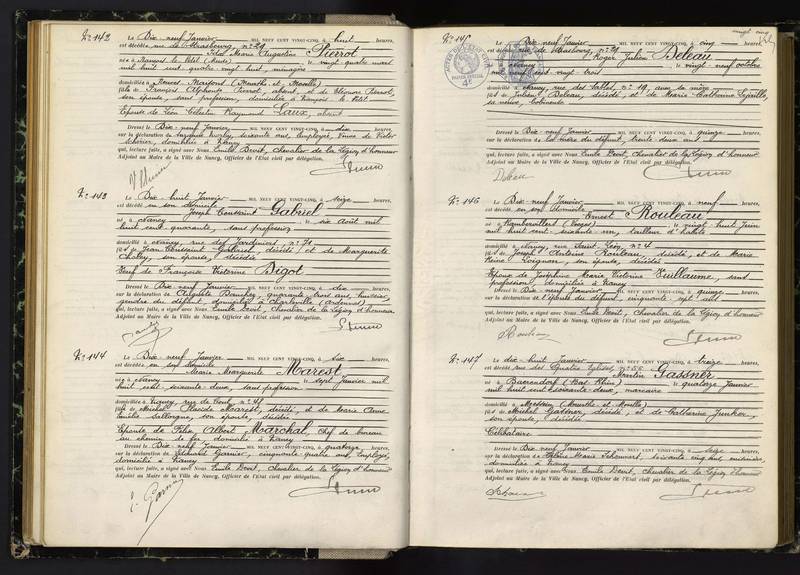 N° 142 Le Dix-neuf Janvier MIL NEUF CENT VINGT-CINQ, à huit heures,
est décédée rue de Strasbourg, n° 29
Marie Augustine Pierrot
née à (Meuse) le vingt-quatre mars
mil huit cent quatre-vingt-huit, ménagère
domiciliée à Maixard (Meurthe-et-Moselle)
fille de François Alphonse Pierrot, absent, et de Pierrot,
son épouse, sans profession, domiciliée à le Petit
Epouse de Léon Célestin Raymond Laux, absent
Dressé le Dix-neuf Janvier MIL NEUF CENT VINGT-CINQ, à dix heures,
sur la déclaration de soixante ans, employée, Veuve de Victor
domiciliée à Nancy
qui, lecture faite, a signé avec Nous Emile Devit, Chevalier de la Légion d'honneur
Adjoint au Maire de la Ville de Nancy, Officier de l'Etat civil par délégation.
N° 143 Le Dix-huit Janvier MIL NEUF CENT VINGT-CINQ, à seize heures,
est décédé en son domicile
Joseph Toussaint Gabriel
né à Nancy le six Août mil
huit cent quarante, sans profession
domicilié à Nancy, rue des Jardiniers n° 71
fils de Jean Toussaint Gabriel, décédé, et de Marguerite
son épouse, décédée
Veuf de Françoise Victorine Bigot
Dressé le Dix-neuf Janvier MIL NEUF CENT VINGT-CINQ, à dix heures,
sur la déclaration de Auguste quarante-trois ans, huissier,
gendre du défunt, domicilié à Charleville (Ardennes)
qui, lecture faite, a signé avec Nous Emile Devit, Chevalier de la Légion d'honneur
Adjoint au Maire de la Ville de Nancy, Officier de l'Etat civil par délégation.
N° 144 Le Dix-neuf Janvier MIL NEUF CENT VINGT-CINQ, à six heures,
est décédée en son domicile
Marie Marguerite Marest
née à Nancy le sept Janvier mil
huit cent soixante-deux, sans profession
domiciliée à Nancy, rue de Toul, n° 48
fille de Michel Placide Marest, décédé, et de Marie Anne
Emélie son épouse, décédée
Epouse de Félix Albert Marchal, chef de bureau
au chemin de fer, domicilié à Nancy
Dressé le Dix-neuf Janvier MIL NEUF CENT VINGT-CINQ, à quatorze heures,
sur la déclaration de Edouard Garnier, cinquante-quatre ans, Employé,
domicilié à Nancy
qui, lecture faite, a signé avec Nous Emile Devit, Chevalier de la Légion d'honneur
Adjoint au Maire de la Ville de Nancy, Officier de l'Etat civil par délégation.
vingt cinq
N° 145 Le Dix-neuf Janvier MIL NEUF CENT VINGT-CINQ, à cinq heures,
est décédé rue de Strasbourg, n° 29
Roger Julien Beleau
né à Nancy le vingt-neuf octobre
mil neuf cent vingt-trois
domicilié à Nancy, rue des n° 19, avec sa mère
fils de Julien Beleau, décédé, et de Marie Catherine
sa veuve, bobineuse
Dressé le Dix-neuf Janvier MIL NEUF CENT VINGT-CINQ, à quinze heures,
sur la déclaration de la mère du défunt, trente-deux ans
qui, lecture faite, a signé avec Nous Emile Devit, Chevalier de la Légion d'honneur
Adjoint au Maire de la Ville de Nancy, Officier de l'Etat civil par délégation.
N° 146 Le Dix-neuf Janvier MIL NEUF CENT VINGT-CINQ, à neuf heures,
est décédé en son domicile
Ernest Rouleau
né à Rambervillers (Vosges) le vingt-huit Juin
mil huit cent soixante-un, tailleur d'habits
domicilié à Nancy, rue Saint-Léon, n° 4
fils de Joseph Antoine Rouleau, décédé, et de Marie
Reine son épouse, décédée
Epoux de Joséphine Marie Victorine Vuillaume, sans
profession, domiciliée à Nancy
Dressé le Dix-neuf Janvier MIL NEUF CENT VINGT-CINQ, à quinze heures,
sur la déclaration de l'épouse du défunt, cinquante-sept ans
qui, lecture faite, a signé avec Nous Emile Devit, Chevalier de la Légion d'honneur
Adjoint au Maire de la Ville de Nancy, Officier de l'Etat civil par délégation.
N° 147 Le dix-huit Janvier MIL NEUF CENT VINGT-CINQ, à treize heures,
est décédé rue des Quatre Eglises, n° 56
Martin Gassner
né à Baerendorf (Bas-Rhin) le quatorze Janvier
mil huit cent soixante-deux, marcaire
domicilié à (Meurthe-et-Moselle)
fils de Michel Gassner, décédé, et de Catherine Junker,
son épouse, décédée
Célibataire
Dressé le Dix-neuf Janvier MIL NEUF CENT VINGT-CINQ, à seize heures,
sur la déclaration de Hélène Marie soixante-cinq ans
domiciliée à Nancy
qui, lecture faite, a signé avec Nous Emile Devit, Chevalier de la Légion d'honneur
Adjoint au Maire de la Ville de Nancy, Officier de l'Etat civil par délégation.